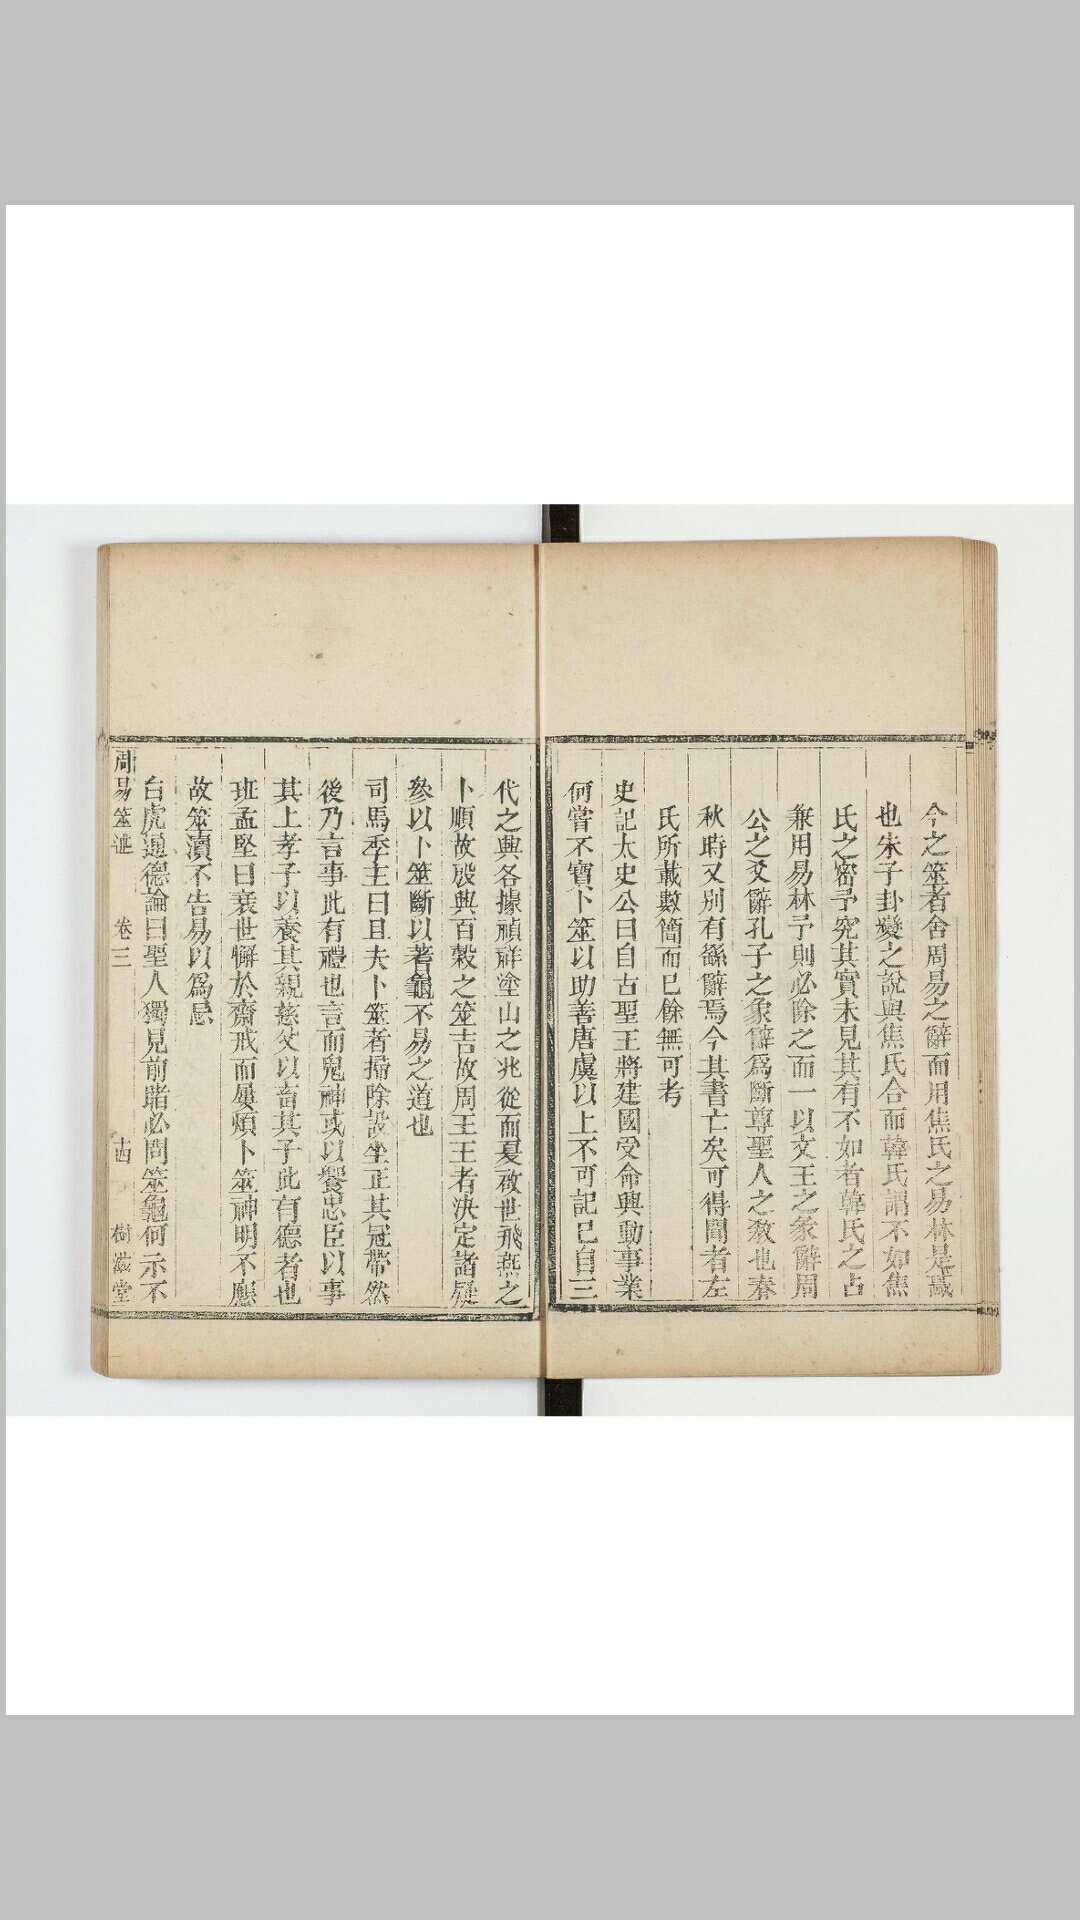 今之筮者舍周易之辭而用焦氏之易林是惑
也朱子卦變之說與焦氏合而韓氏謂不如焦
氏之密予究其實未見其有不如者韓氏之占
兼用易林予則必除之而一以文王之彖辭周
公之爻辭孔子之象辭爲斷尊聖人之敎也春
秋時又別有繇辭焉今其書亡矣可得聞者左
氏所載數簡而已餘無可考
史記太史公曰自古聖王將建國受命興動事業
何嘗不寶卜筮以助善唐虞以上不可記已自三
代之興各據禎祥塗山之兆從而夏啟世飛燕之
卜順故殷興百穀之筮吉故周王王者決定諸疑
參以卜筮斷以蓍龜不易之道也
司馬季主曰且夫卜筮者掃除設坐正其冠帶然
後乃言事此有禮也言而鬼神或以饗忠臣以事
其上孝子以養其親慈父以畜其子此有德者也
班孟堅曰衰世懈於齋戒而屢煩卜筮神明不應
故筮瀆不告易以爲忌
白虎通德論曰聖人獨見前睹必問筮龜何示不
周易筮述 卷三 十四 樹滋堂